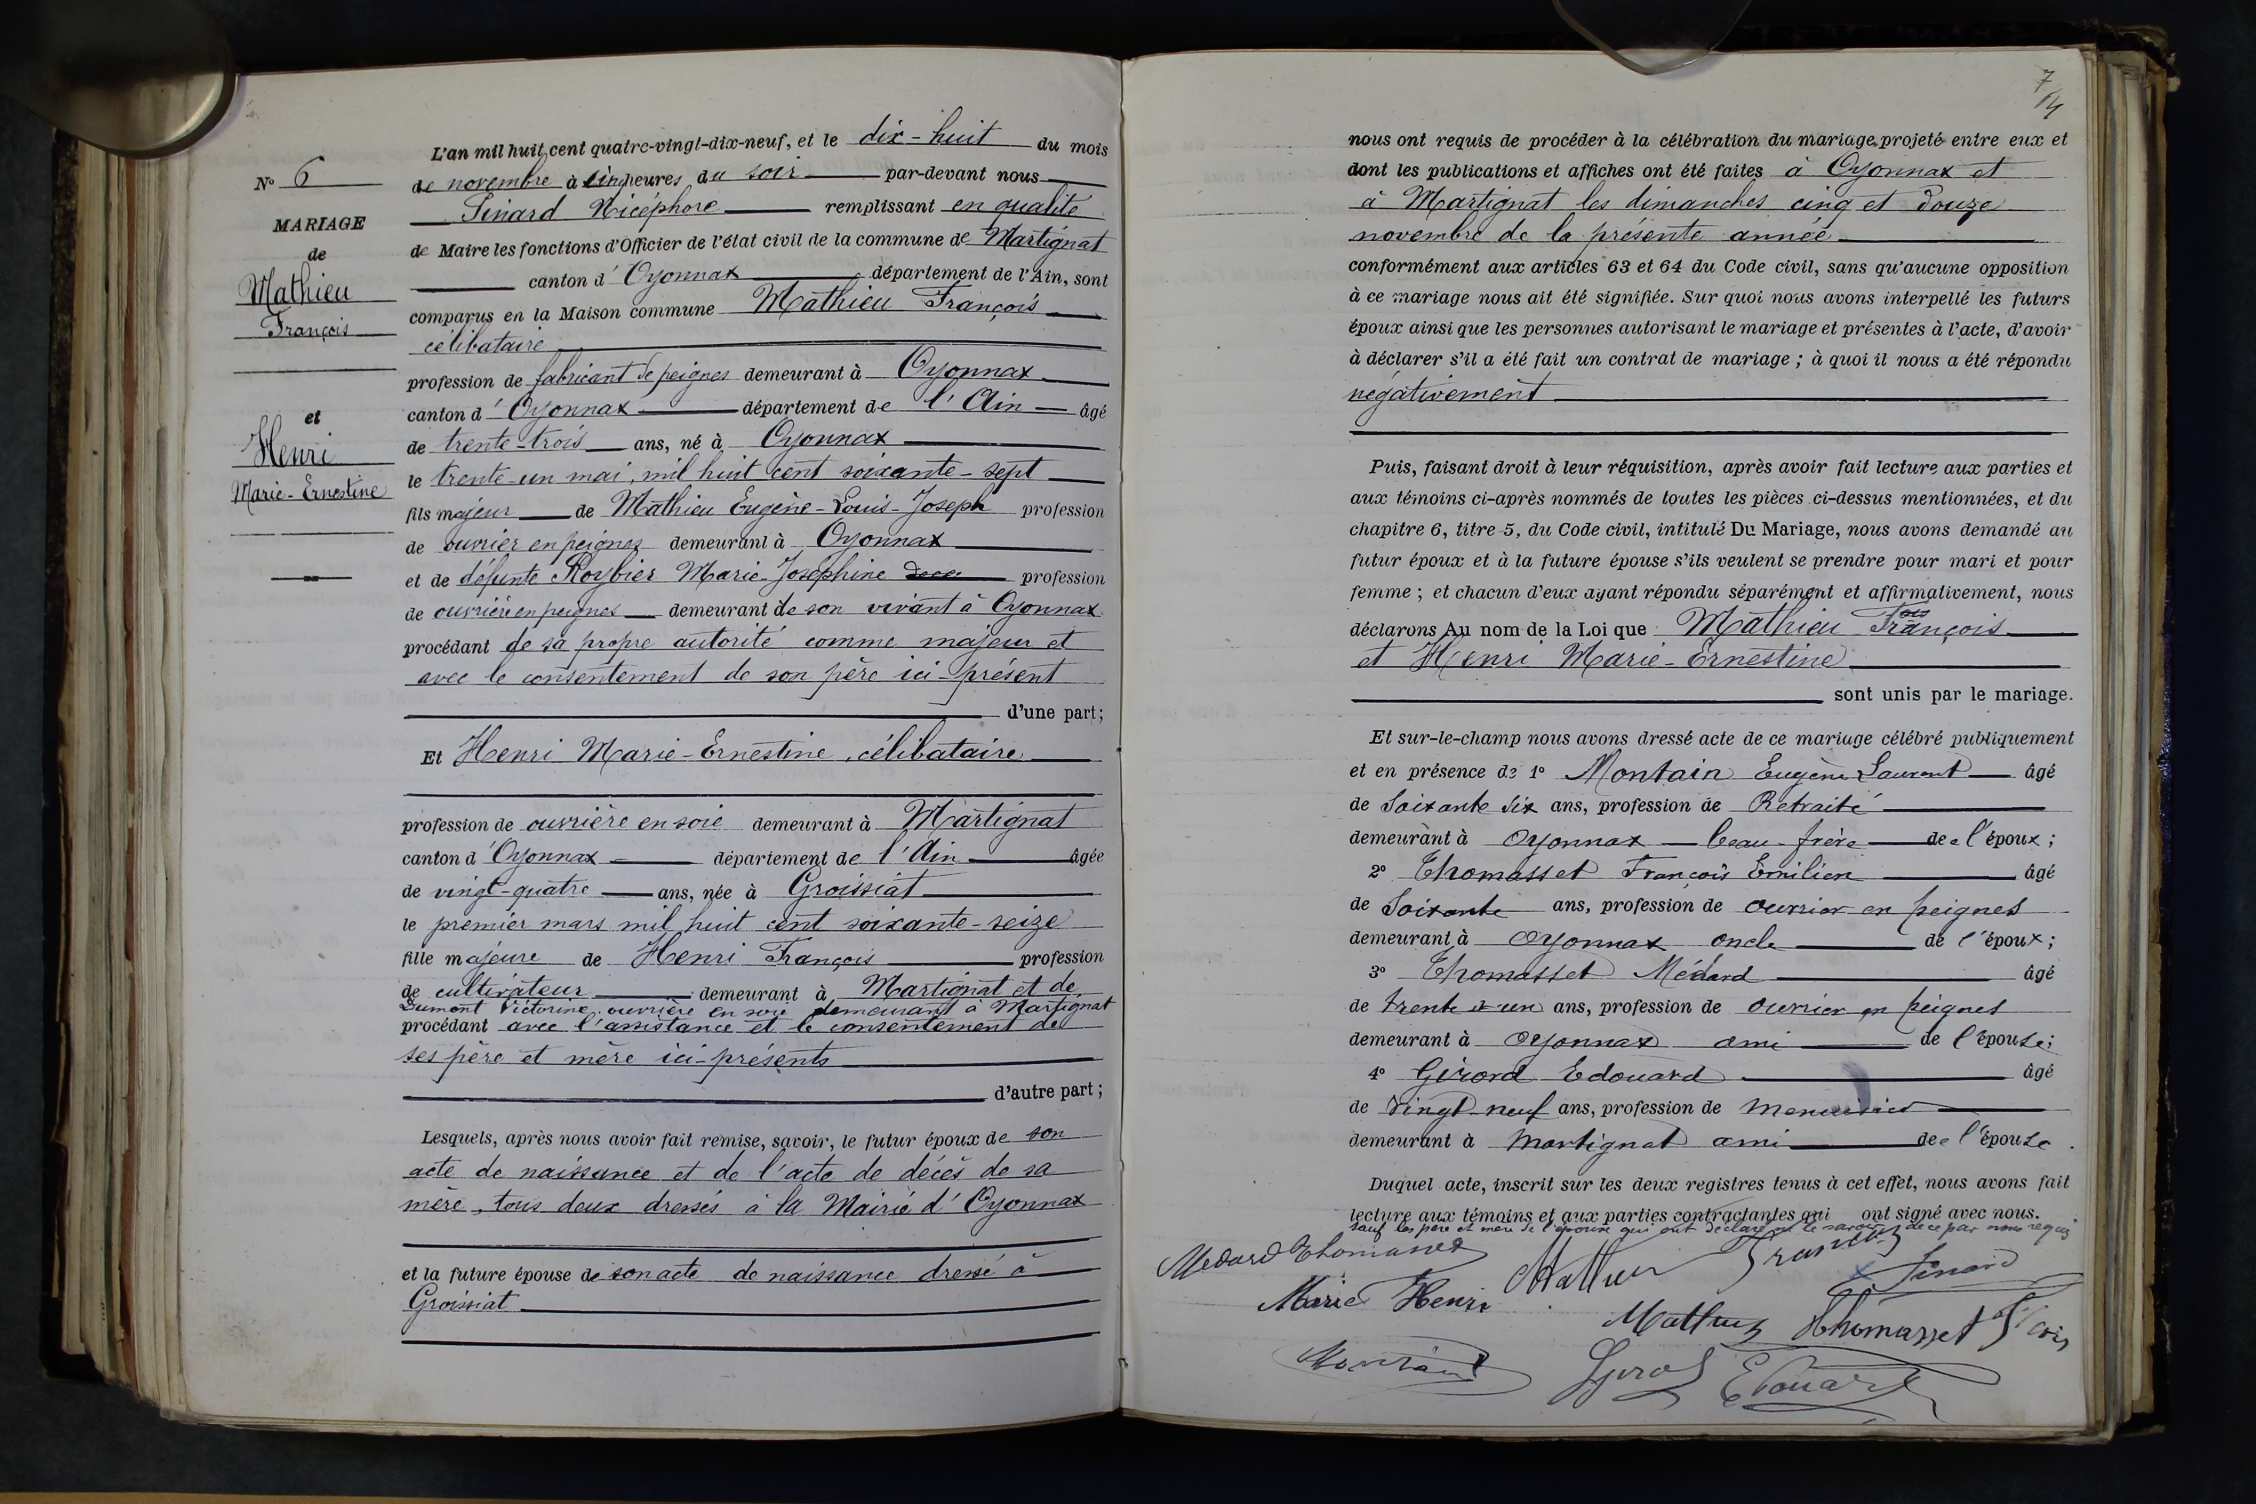 L'an mil huit cent quatre-vingt-dix-neuf, et le dix-huit du mois
de novembre à cinq heures du soir par-devant nous
Sinard Nicéphore remplissant en qualité
de Maire les fonctions d'Officier de l'état civil de la commune de Martignat
canton d'Oyonnax département de l'Ain, sont
comparus en la Maison commune Mathieu François
célibataire
profession de fabricant de peignes demeurant à Oyonnax
canton d'Oyonnax département de l'Ain âgé
de trente-trois ans, né à Oyonnax
le trente-un mai, mil huit cent soixante-sept
fils majeur de Mathieu Eugène-Louis-Joseph profession
de ouvrier en peignes demeurant à Oyonnax
et de défunte Roybier Marie-Joséphine profession
de ouvrière en peignes demeurant de son vivant à Oyonnax
procédant de sa propre autorité comme majeur et
avec le consentement de son père ici-présent
d'une part;
Et Henri Marie-Ernestine, célibataire
profession de ouvrière en soie demeurant à Martignat
canton d'Oyonnax département de l'Ain âgée
de vingt-quatre ans, née à Groissiat
le premier mars mil huit cent soixante-seize
fille majeure de Henri François profession
de cultivateur demeurant à Martignat et de
Dumont Victorine, ouvrière en soie demeurant à Martignat
procédant avec l'assistance et le consentement de
ses père et mère ici-présents
d'autre part;
Lesquels, après nous avoir fait remise, savoir, le futur époux de son
acte de naissance et de l'acte de décès de sa
mère, tous deux dressés à la Mairie d'Oyonnax
et la future épouse de son acte de naissance dressé à
Groissiat
No 6
MARIAGE
de
Mathieu
François
et
Henri
Marie-Ernestine
7
14
nous ont requis de procéder à la célébration du mariage projeté entre eux et
dont les publications et affiches ont été faites à Oyonnax et
à Martignat les dimanches cinq et douze
novembre de la présente année
conformément aux articles 63 et 64 du Code civil, sans qu'aucune opposition
à ce mariage nous ait été signifiée. Sur quoi nous avons interpellé les futurs
époux ainsi que les personnes autorisant le mariage et présentes à l'acte, d'avoir
à déclarer s'il a été fait un contrat de mariage; à quoi il nous a été répondu
négativement
Puis, faisant droit à leur réquisition, après avoir fait lecture aux parties et
aux témoins ci-après nommés de toutes les pièces ci-dessus mentionnées, et du
chapitre 6, titre 5, du Code civil, intitulé Du Mariage, nous avons demandé au
futur époux et à la future épouse s'ils veulent se prendre pour mari et pour
femme; et chacun d'eux ayant répondu séparément et affirmativement, nous
déclarons Au nom de la Loi que Mathieu François
et Henri Marie-Ernestine
sont unis par le mariage.
Et sur-le-champ nous avons dressé acte de ce mariage célébré publiquement
et en présence de 1° Montain Eugène Laurent âgé
de Soixante six ans, profession de Retraité
demeurant à Oyonnax beau-frère de l'époux;
2° Thomasset François Emilien âgé
de Soixante ans, profession de ouvrier en peignes
demeurant à Oyonnax oncle de l'époux;
3° Thomasset Médard âgé
de trente et un ans, profession de ouvrier en peignes
demeurant à Oyonnax ami de l'épouse;
4° Girord Edouard âgé
de Vingt neuf ans, profession de menuisier
demeurant à Martignat ami de l'épouse.
Duquel acte, inscrit sur les deux registres tenus à cet effet, nous avons fait
lecture aux témoins et aux parties contractantes qui ont signé avec nous.
sauf les père et mère de l'épouse qui ont déclaré ne le savoir de ce par nous requis
Médard Thomasset Mathieu François
Sinard
Marie Henri
Mathieu Thomasset Fcois
Montain
Girod Edouard